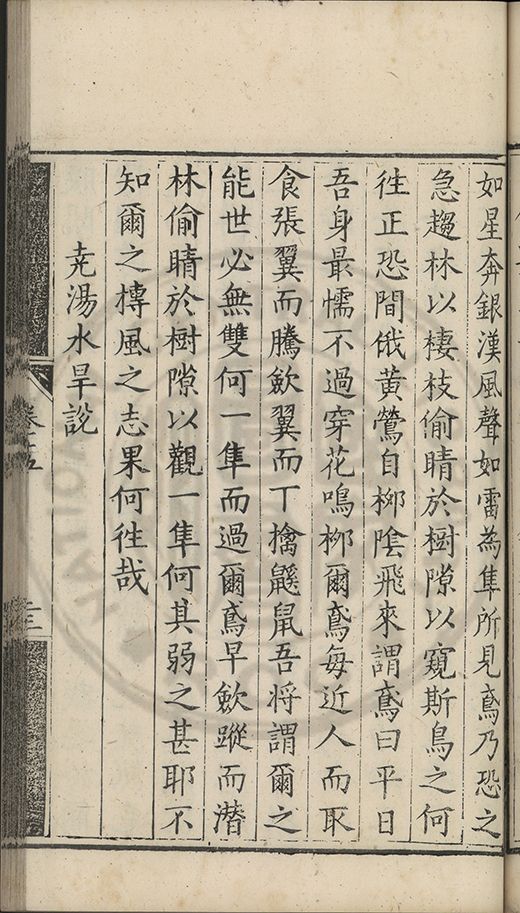 如星奔銀漢風聲如雷為隼所見鳶乃恐之
急趨林以棲枝偷睛於樹隙以窺斯鳥之何
徃正恐間俄黄鶯自桺陰飛來謂鳶曰平日
吾身最懦不過穿花鳴桺爾鳶每近人而取
食張翼而騰歛翼而下擒鼷鼠吾将謂爾之
能世必無雙何一隼而過爾鳶早歛蹤而潜
林偷睛於樹隙以觀一隼何其弱之甚耶不
知爾之摶風之志果何徃哉
尭湯水旱說